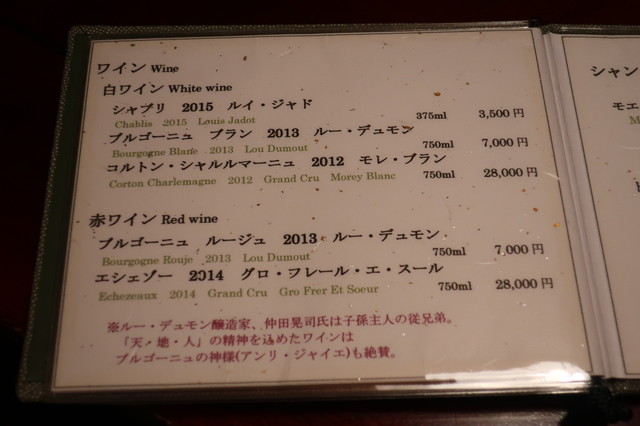 ワイン Wine
白ワイン White wine
シャブリ 2015 ルイ・ジャド 375ml 3,500円
Chablis 2015 Louis Jadot
ブルゴーニュ ブラン 2013 ルー・デュモン 750ml 7,000円
Bourgogne Blanc 2013 Lou Dumout
コルトン・シャルルマーニュ 2012 モレ・ブラン 750ml 28,000円
Corton Charlemagne 2012 Grand Cru Morey Blanc
赤ワイン Red wine
ブルゴーニュ ルージュ 2013 ルー・デュモン 750ml 7,000円
Bourgogne Rouje 2013 Lou Dumout
エシェゾー 2014 グロ・フレール・エ・スール 750ml 28,000円
Echezeaux 2014 Grand Cru Gro Frer Et Soeur
※ルー・デュモン醸造家、仲田晃司氏は子孫主人の従兄弟。
「天・地・人」の精神を込めたワインは
ブルゴーニュの神様(アンリ・ジャイエ)も絶賛。
シャン
モエ
M